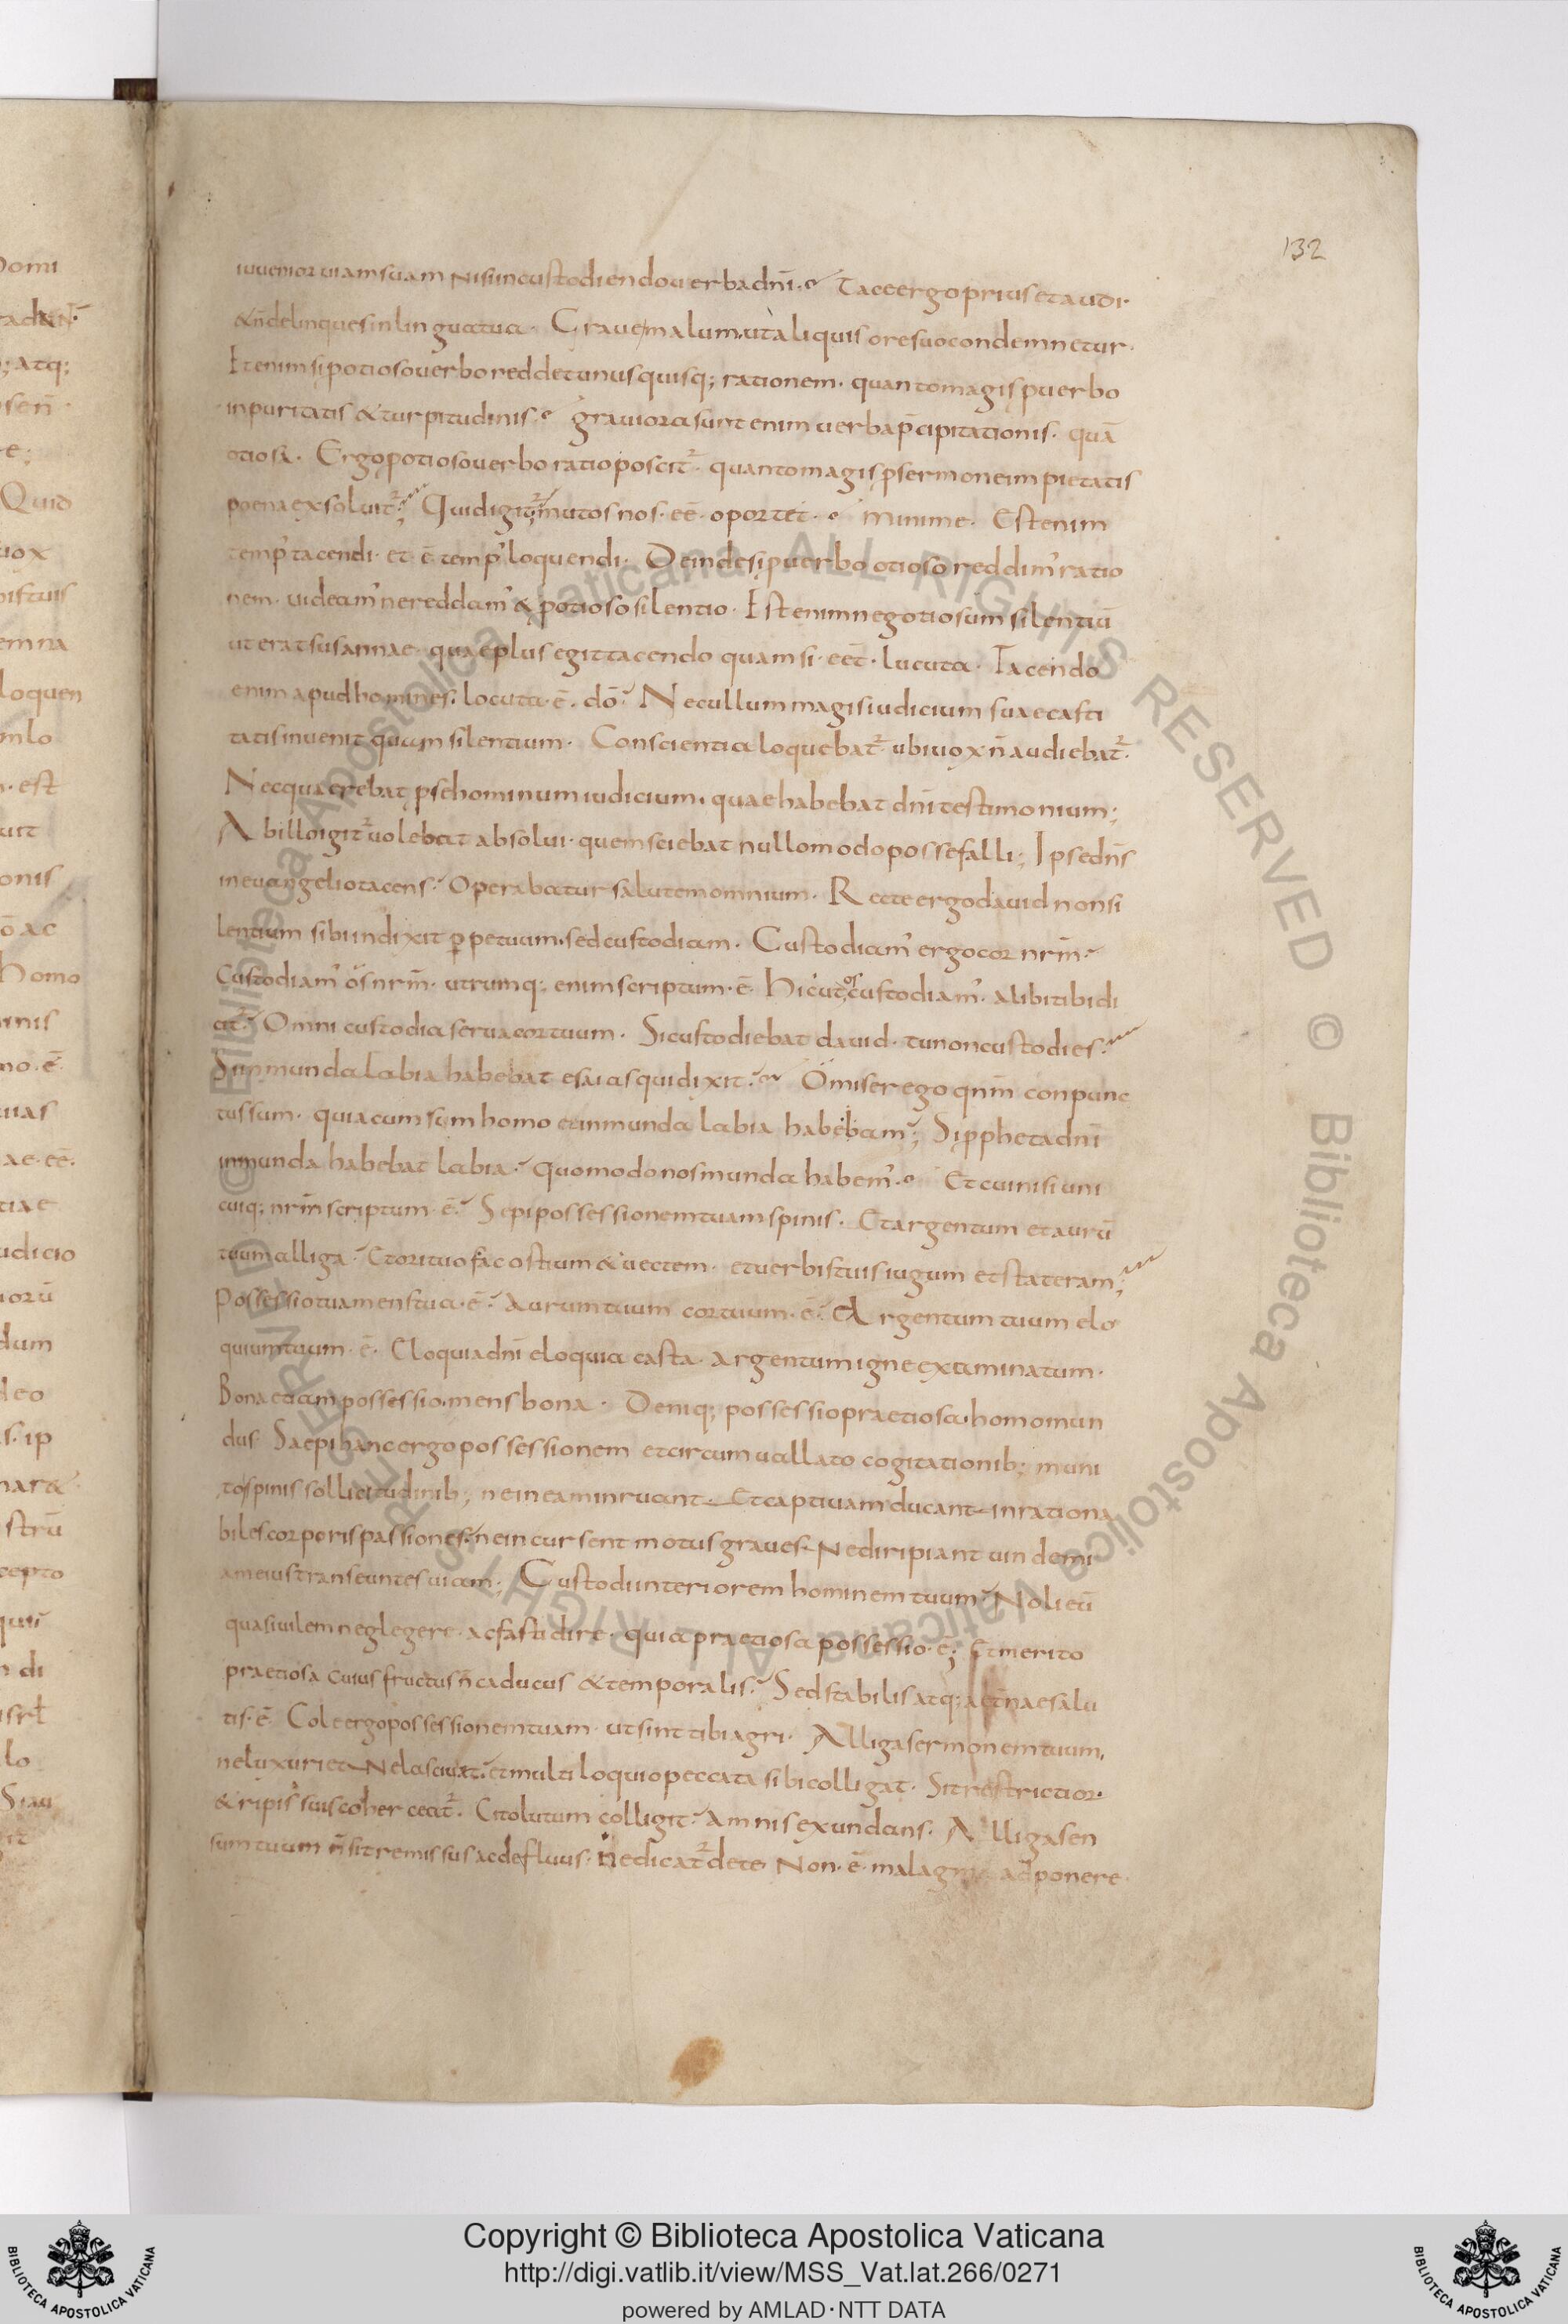 132
iuuenior uiam suam Nisi in custodiendo uerba dnī· Tace ergo prius et audi·
& n̄ delinques in lingua tua· Graue malum ut aliquis ore suo condemnetur·
Etenim si p otioso uerbo reddet unusquisq; rationem· quanto magis p uerbo
inpuritatis & turpitudinis· grauiora sunt enim uerba p̄cipitationis· quā
otiosa· Ergo p otioso uerbo ratio poscit᷑· quanto magis p sermone impietatis
poena exsoluit᷑; Quid igit᷑ mutos nos· eē· oportet· minime· Est enim
temp' tacendi· et ē temp' loquendi· Deinde si p uerbo otioso reddim' ratio
nem· uideam' ne reddam' & p otioso silentio· Est enim negotiosum silentiū
ut erat susannae· quae plus egit tacendo quam si· eēt· lucuta· Tacendo
enim apud homines· locuta· ē· dō· Nec ullum magis iudicium suae casti
tatis inuenit quam silentium· Conscientia loquebat᷑· ubi uox n̄ audiebat᷑·
Nec quaerebat p se hominum iudicium· quae habebat dnī testimonium;
Ab illo igit᷑ uolebat absolui· quem sciebat nullo modo posse falli; Ipse dn̄s
in euangelio tacens· Operabatur salutem omnium· Recte ergo dauid non si
lentium sibi indixit p̱petuum· sed custodiam· Custodiam' ergo cor nrm̄·
Custodiam' ós nrm̄· utrumq; enim scriptum· ē· Hic ut os custodiam'· alibi tibi di
cit᷑· Omni custodia serua cor tuum· Si custodiebat dauid· tu non custodies·
Si inmunda labia habebat esaias qui dixit· O miser ego qnm̄ conpunc
tus sum· quia cum sim homo et inmunda labia habebam; Si p̱pheta dnī
inmunda habebat labia· quomodo nos munda habem'· Et cui nisi uni
cuiq; nrm̄ scriptum· ē· Sepi possessionem tuam spinis· Et argentum et aurū
tuum alliga· Et ori tuo fac ostium & uectem· et uerbis tuis iugum et stateram;
Possessio tua mens tua· ē· Aurum tuum cor tuum· ē· Argentum tuum elo
quium tuum· ē· Eloquia dnī eloquia casta· argentum igne examinatum·
Bona etiam possessio· mens bona· Deniq; possessio praetiosa· homo mun
dus Saepi hanc ergo possessionem et circumuallato cogitationib; muni
to spinis sollicitudinib; ne in eam inruant· Et captiuam ducant inrationa
biles corporis passiones· ne incursent motus graues· Ne diripiant uindemi
am eius transeuntes uiam; Custodi interiorem hominem tuum· Noli eū
quasi uilem neglegere· ac fastidire· quia praetiosa possessio· ē; Et merito
praetiosa cuius fructus n̄ caducus & temporalis· Sed stabilis atq; aet̄nae salu
tis· ē· Cole ergo possessionem tuam· ut sint tibi agri· Alliga sermonem tuum,
ne luxuriet Ne lasciuiat· et multiloquio peccata sibi colligat· Sit restrictior·
& ripis suis coherceat᷑· Cito lutum colligit· Amnis exundans· Alliga sen
sum tuum n̄ sit remissus ac defluus· Ne dicat᷑ de te· Non· ē· malagma adponere·
Copyright © Biblioteca Apostolica Vaticana
http://digi.vatlib.it/view/MSS_Vat.lat.266/0271
powered by AMLAD·NTT DATA
BIBLIOTECA APOSTOLICA VATICANA
BIBLIOTECA APOSTOLICA VATICANA
© Biblioteca Apostolica Vaticana ALL RIGHTS RESERVED © Biblioteca Apostolica Vaticana ALL RIGHTS RESERVED